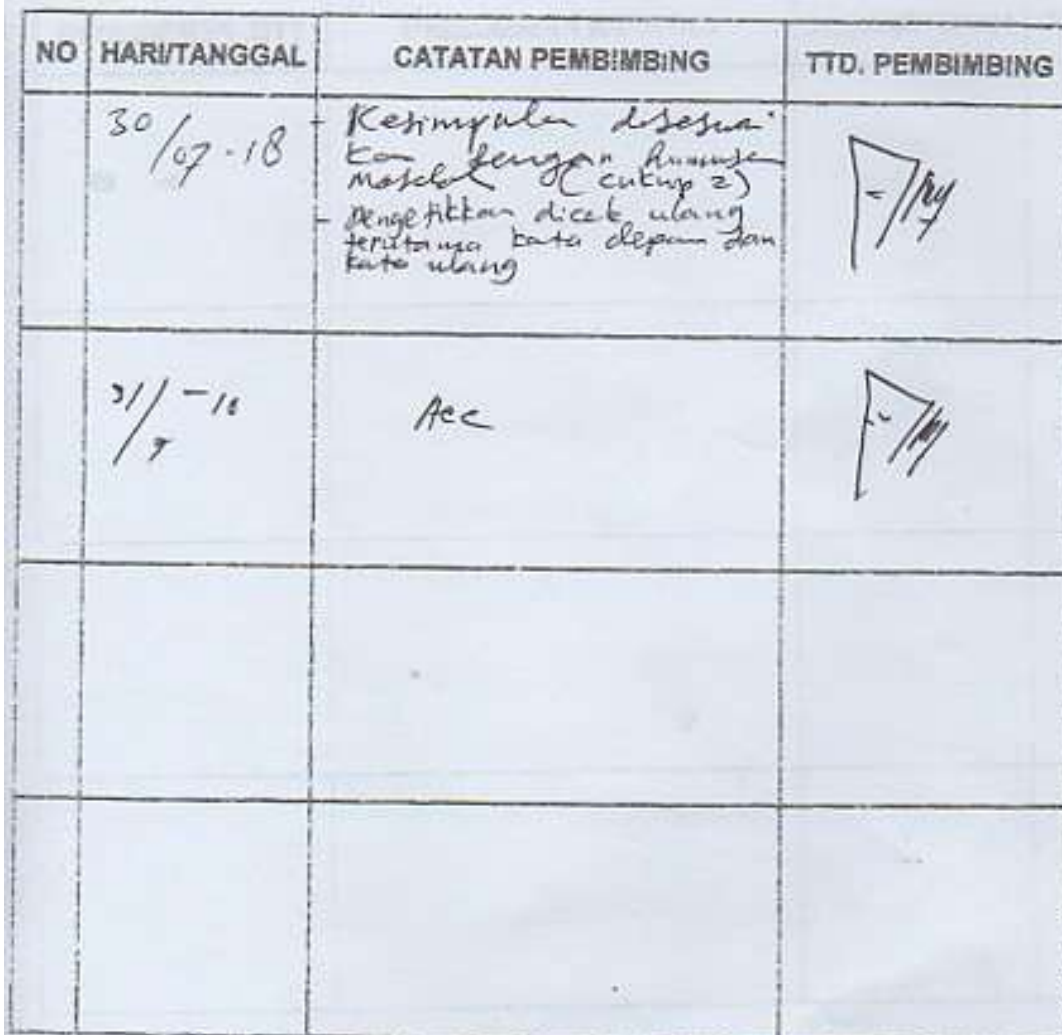 NO HARI/TANGGAL CATATAN PEMBIMBING TTD. PEMBIMBING
30/07-18
- Kesimpulan disesuai
kan dengan rumusan
masalah (cukup 2)
- Pengetikkan dicek ulang
terutama kata depan dan
kata ulang
31/
Acc